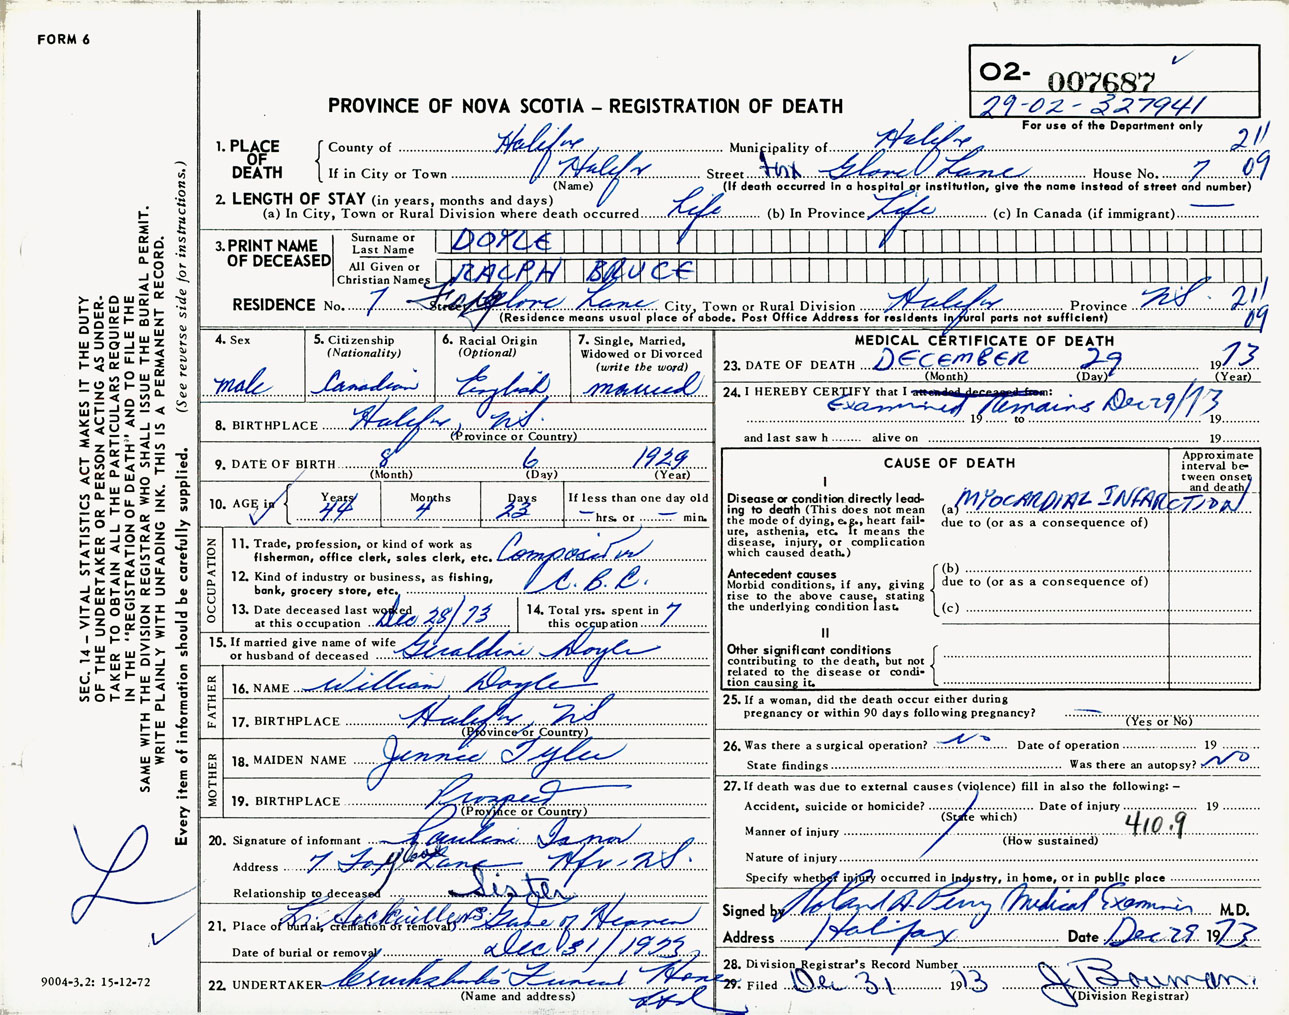 FORM 6
02- 007687
29-02-327941
For use of the Department only
PROVINCE OF NOVA SCOTIA – REGISTRATION OF DEATH
1. PLACE OF DEATH
County of Halifax Municipality of Halifax 211
If in City or Town Halifax Street Fox Glove Lane House No. 7 09
(Name) (If death occurred in a hospital or institution, give the name instead of street and number)
2. LENGTH OF STAY (in years, months and days)
(a) In City, Town or Rural Division where death occurred Life (b) In Province Life (c) In Canada (if immigrant) —
3. PRINT NAME OF DECEASED
Surname or Last Name DOYLE
All Given or Christian Names RALPH BRUCE
RESIDENCE No. 7 Street Foxglove Lane City, Town or Rural Division Halifax Province NS. 211
(Residence means usual place of abode. Post Office Address for residents in rural parts not sufficient) 09
4. Sex male
5. Citizenship (Nationality) Canadian
6. Racial Origin (Optional) English
7. Single, Married, Widowed or Divorced (write the word) married
8. BIRTHPLACE Halifax, NS.
(Province or Country)
9. DATE OF BIRTH 8 6 1929
(Month) (Day) (Year)
10. AGE in Years 44 Months 4 Days 23 If less than one day old — hrs. or — min.
OCCUPATION
11. Trade, profession, or kind of work as fisherman, office clerk, sales clerk, etc. Compositor
12. Kind of industry or business, as fishing, bank, grocery store, etc. C.B.C.
13. Date deceased last worked at this occupation Dec 28/73
14. Total yrs. spent in this occupation 7
15. If married give name of wife or husband of deceased Geraldine Doyle
FATHER
16. NAME William Doyle
17. BIRTHPLACE Halifax, NS
(Province or Country)
MOTHER
18. MAIDEN NAME Jennie Tyler
19. BIRTHPLACE Prospect
(Province or Country)
20. Signature of informant Pauline
Address 7 Foxglove Lane Hfx - NS.
Relationship to deceased Sister
21. Place of burial, cremation or removal) Lr. Sackville NS Gate of Heaven
Date of burial or removal Dec 31/1973
22. UNDERTAKER Cruikshanks Funeral Home Ltd
(Name and address)
MEDICAL CERTIFICATE OF DEATH
23. DATE OF DEATH DECEMBER 29 1973
(Month) (Day) (Year)
24. I HEREBY CERTIFY that I attended deceased from:
Examined Remains Dec 29/73
19 to 19
and last saw h alive on 19
CAUSE OF DEATH
Approximate interval between onset and death
I
Disease or condition directly leading to death (This does not mean the mode of dying, e.g., heart failure, asthenia, etc. It means the disease, injury, or complication which caused death.)
(a) MYOCARDIAL INFARCTION
due to (or as a consequence of)
Antecedent causes
Morbid conditions, if any, giving rise to the above cause, stating the underlying condition last.
(b)
due to (or as a consequence of)
(c)
II
Other significant conditions contributing to the death, but not related to the disease or condition causing it.
25. If a woman, did the death occur either during pregnancy or within 90 days following pregnancy? —
(Yes or No)
26. Was there a surgical operation? No Date of operation 19
State findings Was there an autopsy? No
27. If death was due to external causes (violence) fill in also the following: –
Accident, suicide or homicide? Date of injury 19
(State which)
Manner of injury 410.9
(How sustained)
Nature of injury
Specify whether injury occurred in industry, in home, or in public place
Signed by Roland A. Perry Medical Examiner M.D.
Address Halifax Date Dec 29 1973
28. Division Registrar's Record Number
29. Filed Dec 31 1973 J Bowman.
(Division Registrar)
SEC. 14 – VITAL STATISTICS ACT MAKES IT THE DUTY
OF THE UNDERTAKER OR PERSON ACTING AS UNDER-
TAKER TO OBTAIN ALL THE PARTICULARS REQUIRED
IN THE "REGISTRATION OF DEATH" AND TO FILE THE
SAME WITH THE DIVISION REGISTRAR WHO SHALL ISSUE THE BURIAL PERMIT.
WRITE PLAINLY WITH UNFADING INK. THIS IS A PERMANENT RECORD.
Every item of information should be carefully supplied. (See reverse side for instructions.)
9004-3.2: 15-12-72